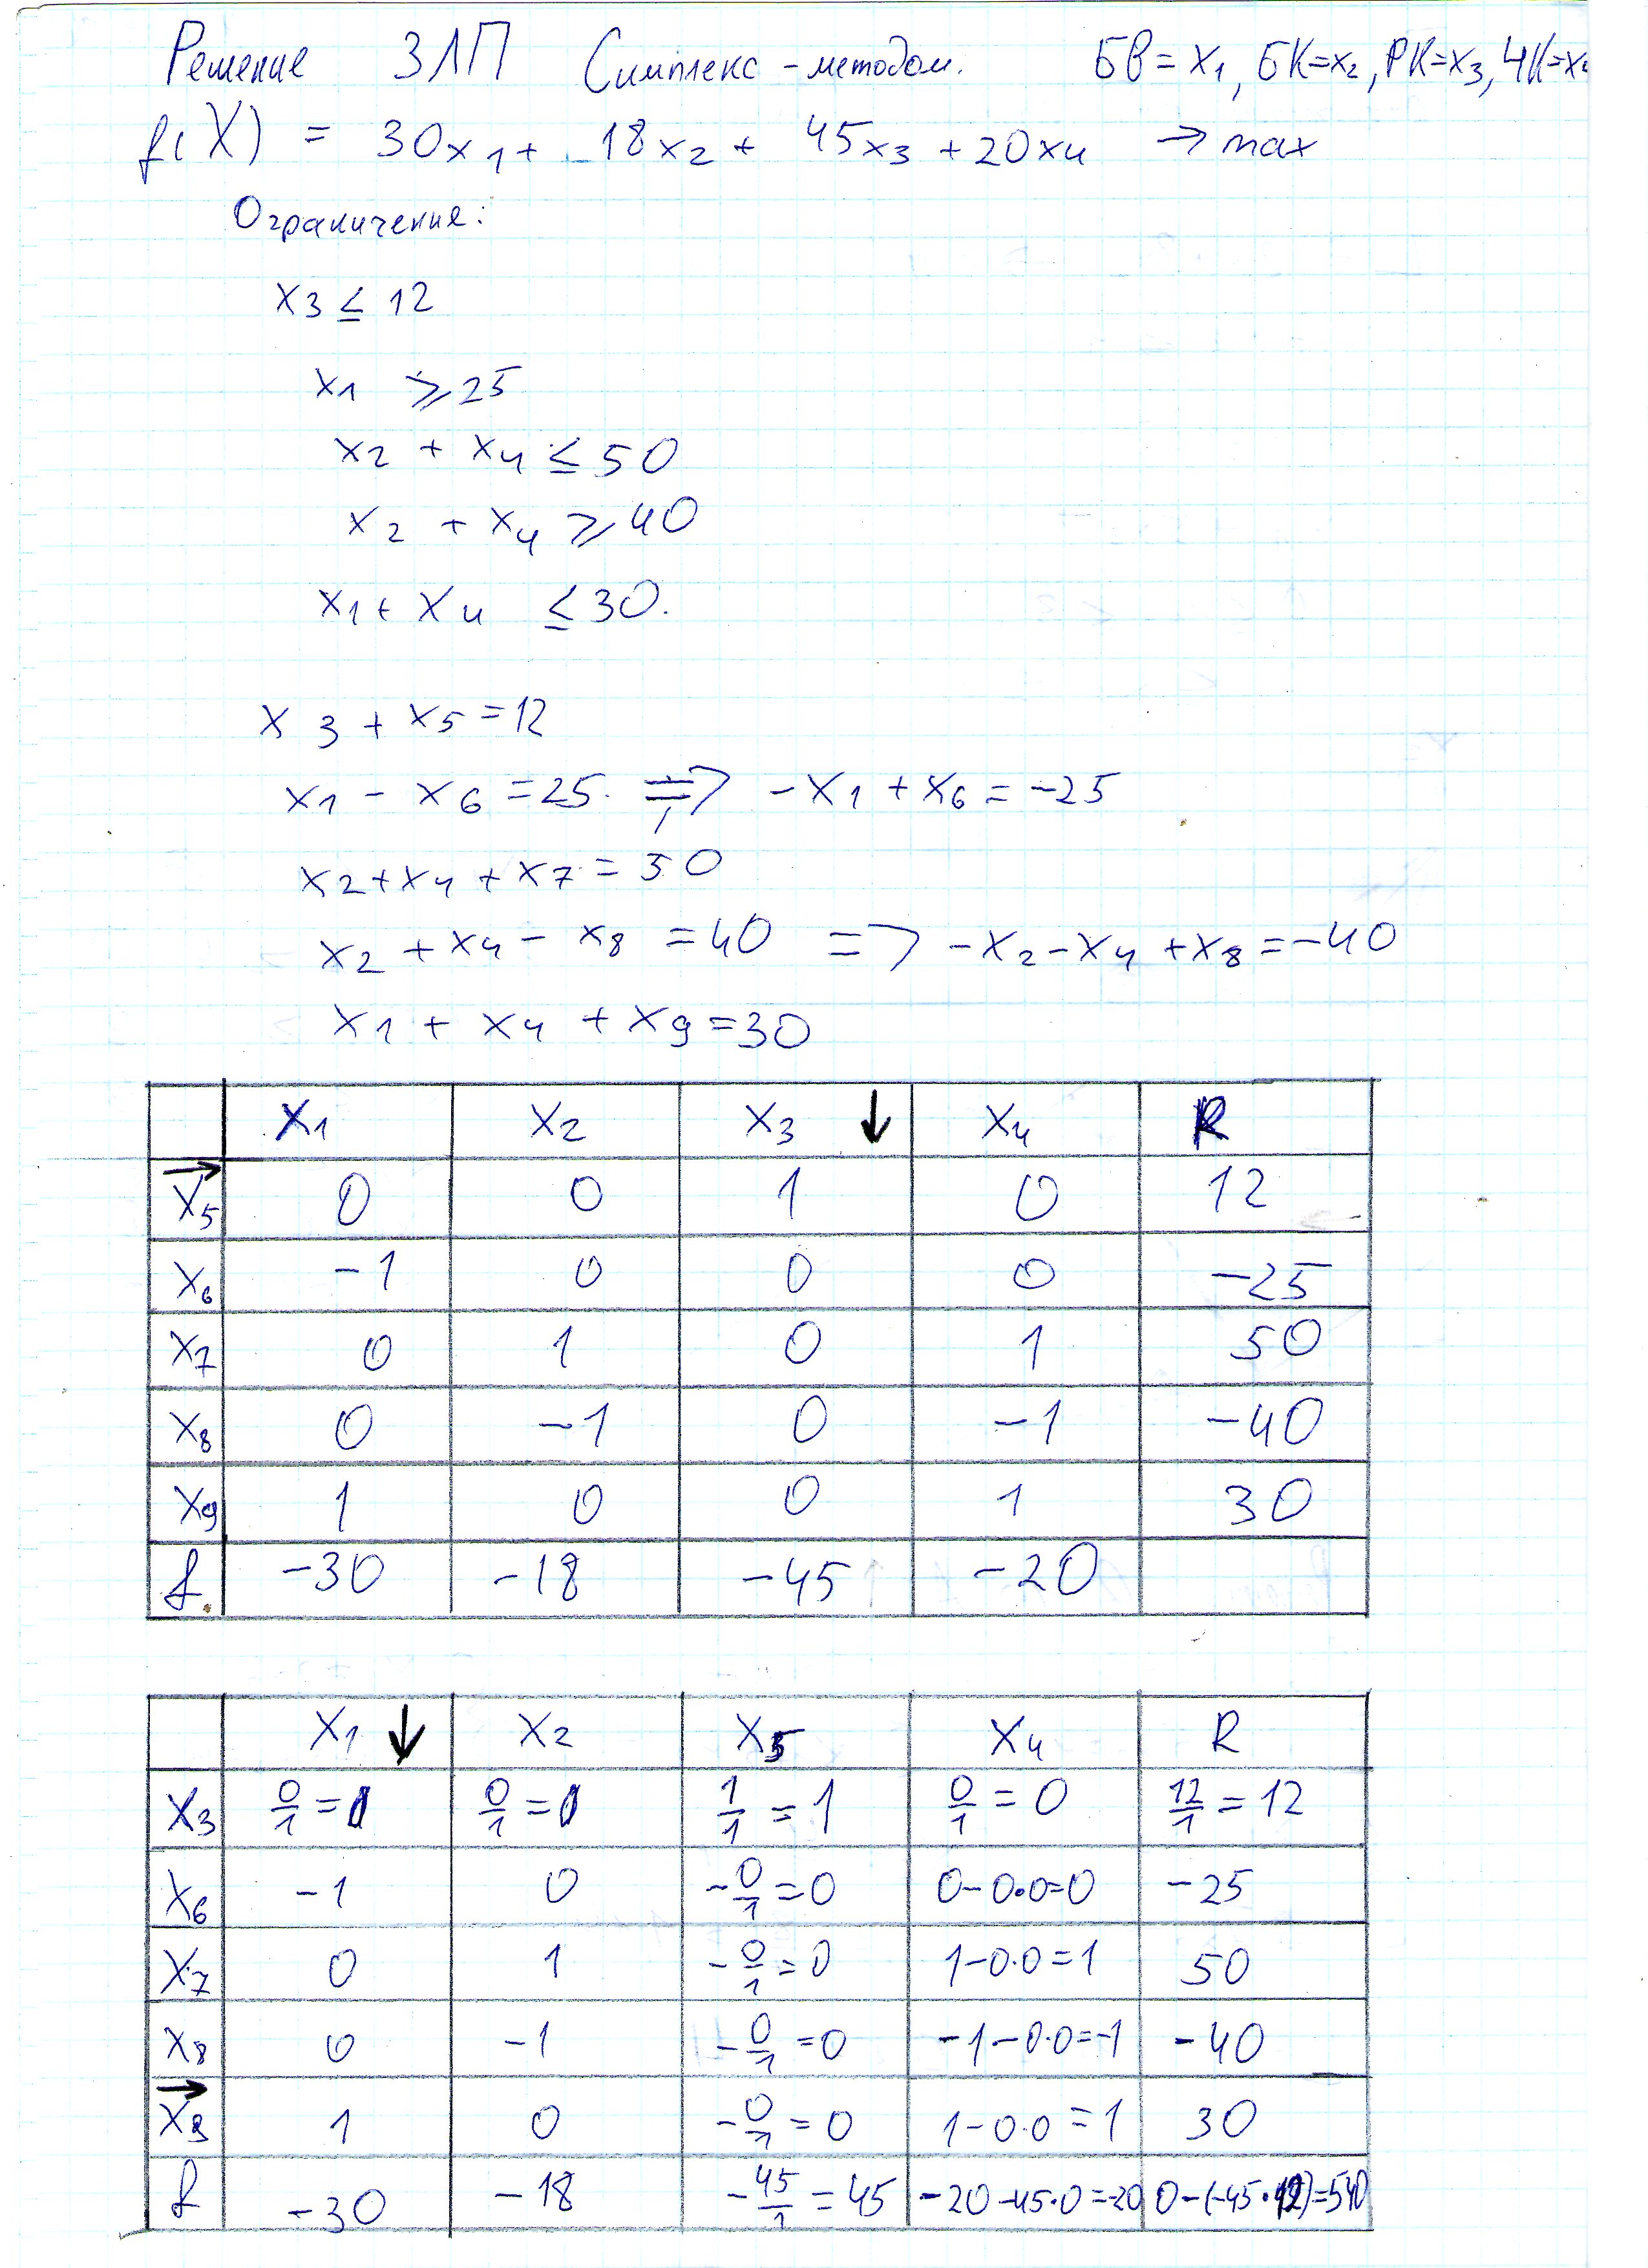 Решение ЗЛП Симплекс-методом. БВ = x1, БК=x2, РК=x3, ЧК=x4
f(X) = 30x1 + 18x2 + 45x3 + 20x4 → max
Ограничения:
x3 ≤ 12
x1 ≥ 25
x2 + x4 ≤ 50
x2 + x4 ≥ 40
x1 + x4 ≤ 30.
x3 + x5 = 12
x1 - x6 = 25. => -x1 + x6 = -25
x2 + x4 + x7 = 50
x2 + x4 - x8 = 40 => -x2 - x4 + x8 = -40
x1 + x4 + x9 = 30
x1 x2 x3 ↓ x4 R
x5 0 0 1 0 12
x6 -1 0 0 0 -25
x7 0 1 0 1 50
x8 0 -1 0 -1 -40
x9 1 0 0 1 30
f -30 -18 -45 -20
x1 ↓ x2 x5 x4 R
x3 0/1 = 0 0/1 = 0 1/1 = 1 0/1 = 0 12/1 = 12
x6 -1 0 -0/1 = 0 0-0·0=0 -25
x7 0 1 -0/1 = 0 1-0·0=1 50
x8 0 -1 -0/1 = 0 -1-0·0=-1 -40
x9 1 0 -0/1 = 0 1-0·0=1 30
f -30 -18 -45/1 = 45 -20-45·0=-20 0-(-45·12)=540